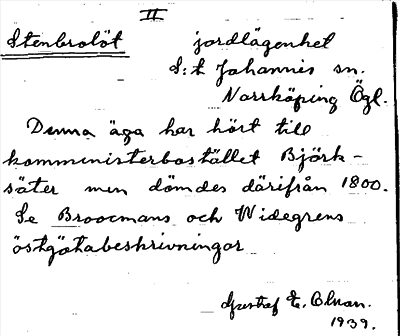 II
Stenbrolöt jordlägenhet
S:t Johannis sn.
Norrköping Ögl.
Denna äga har hört till
komministerbostället Björk-
säter men dömdes därifrån 1800.
Se Broocmans och Widegrens
östgötabeskrivningar
Gustaf E. Olsson.
1939.